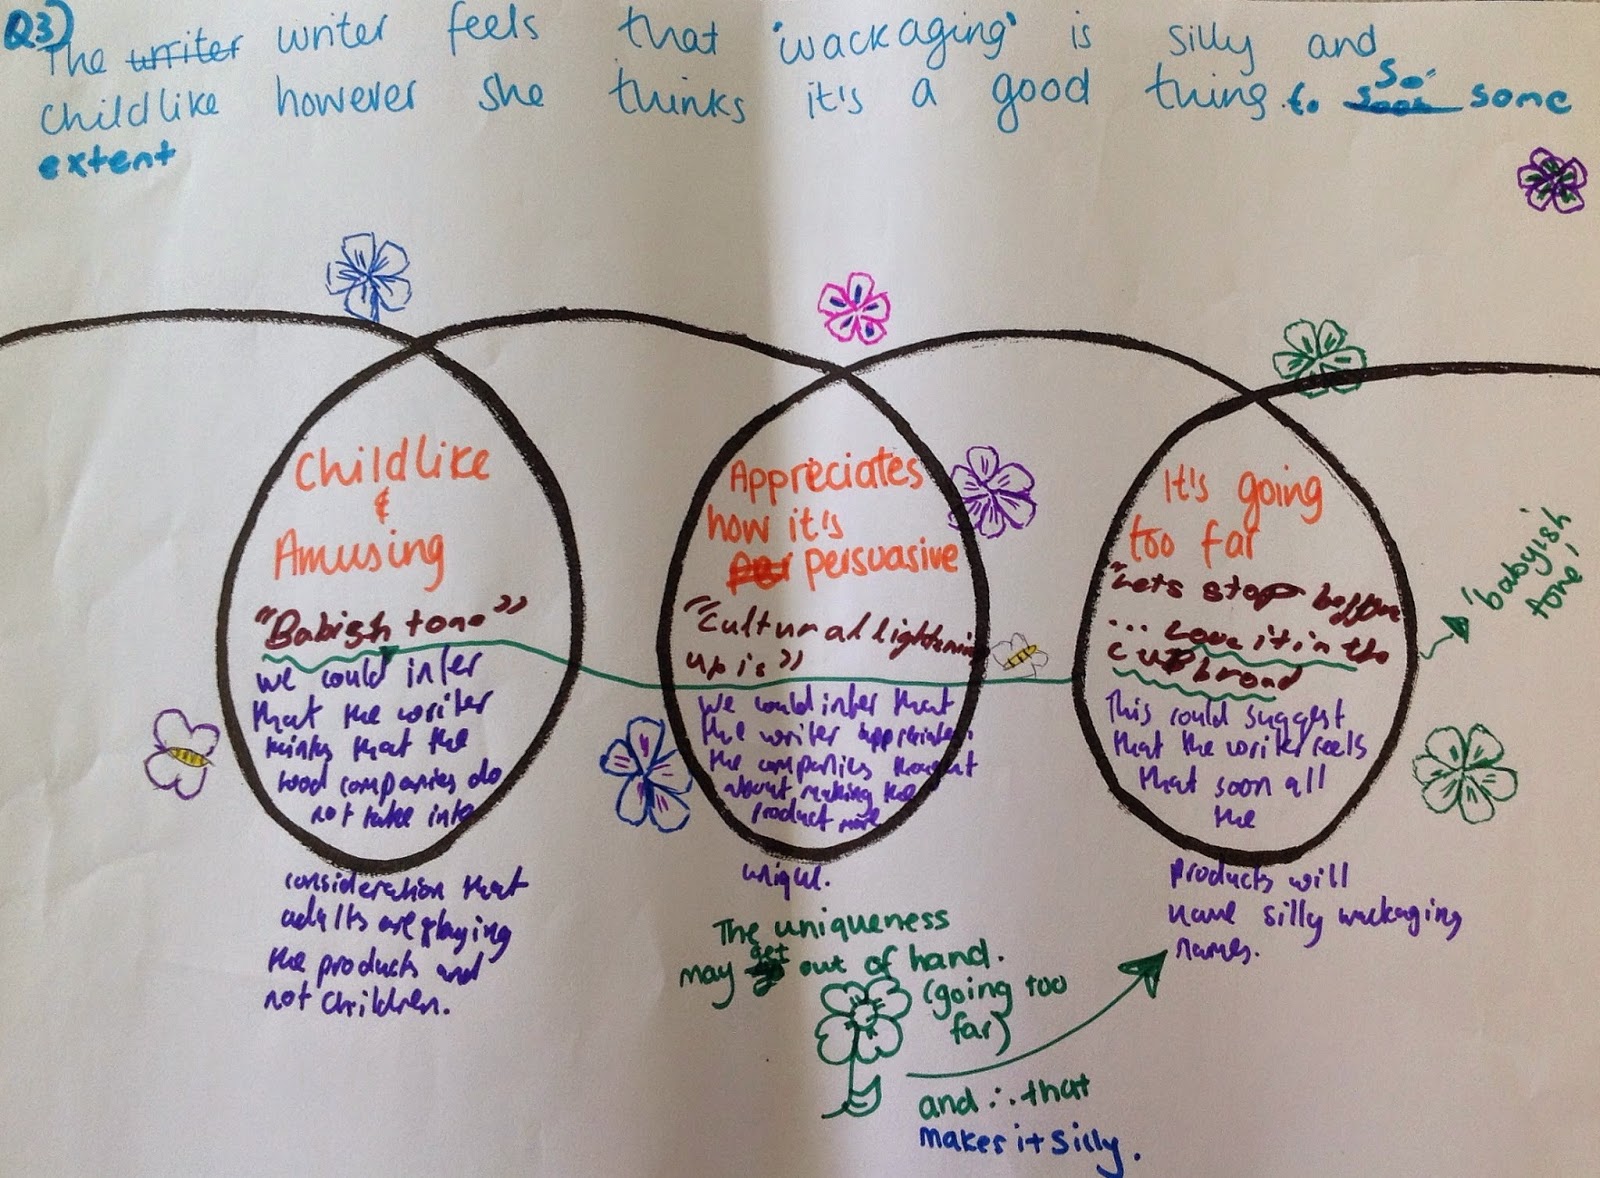 Q3)
The writer writer feels that 'wackaging' is silly and
childlike however she thinks it's a good thing. to so some
extent
Childlike
&
Amusing
"Babish tone"
we could infer
that the writer
thinks that the
food companies do
not take into
consideration that
adults are playing
the products and
not children.
Appreciates
how it's
persuasive
"Cultural lightening
up is"
We could infer that
the writer appreciates
the companies thought
about making the
product more
unique.
The uniqueness
may get out of hand.
(going too
far)
and ∴ that
makes it silly.
It's going
too far
"Lets stop before
... Love it in the
cupboard
This could suggest
that the writer feels
that soon all
the
products will
have silly wackaging
names.
'babyish
tone'